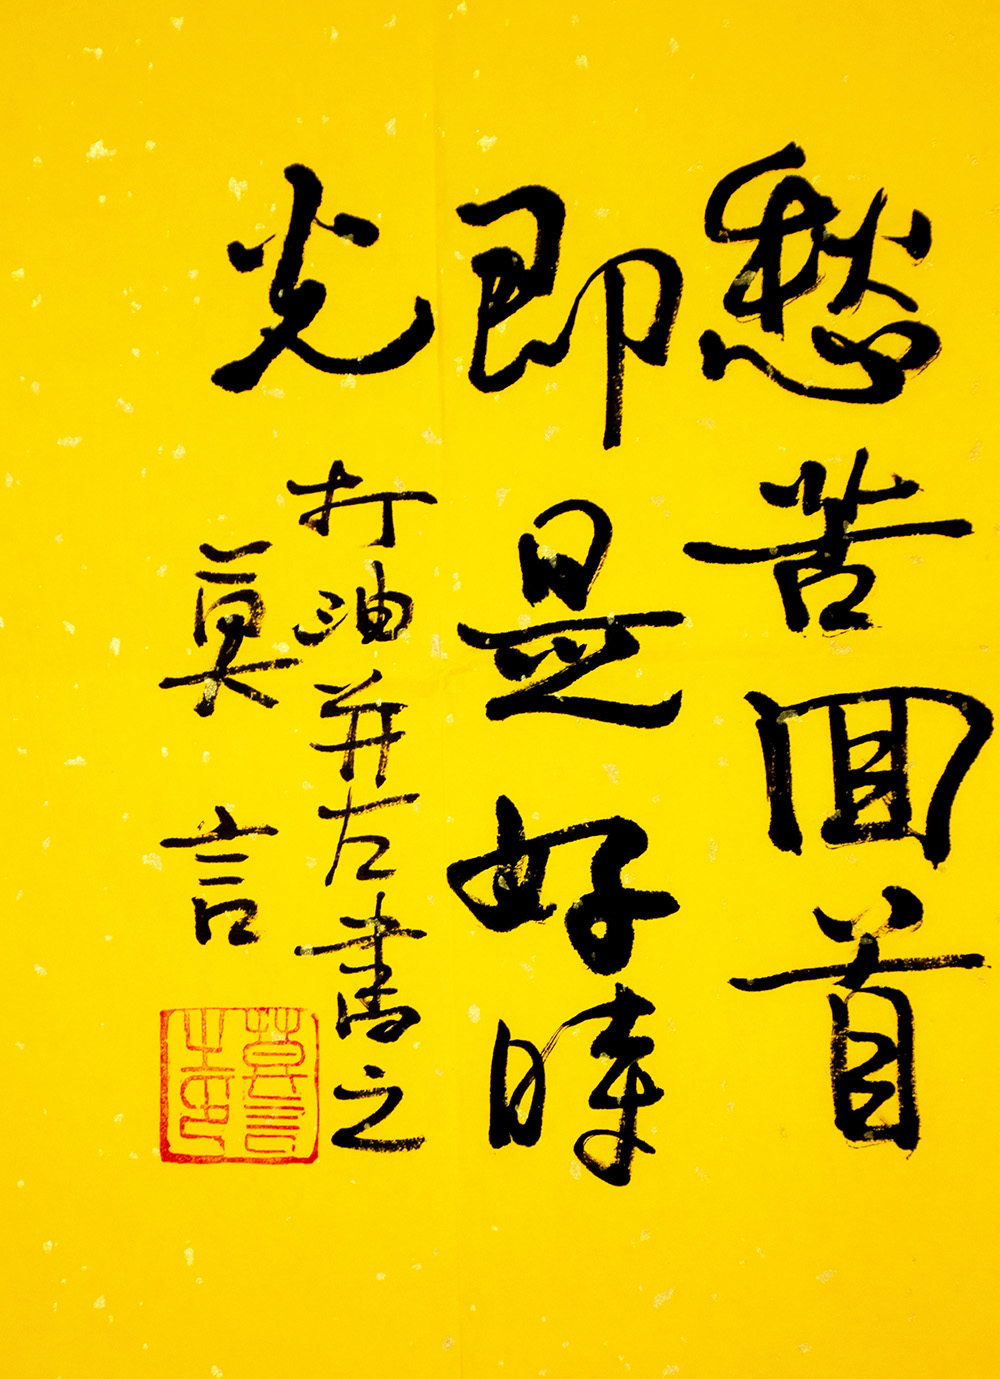 愁苦回首
即是好時
光
打油并左書之
莫言
莫言之印